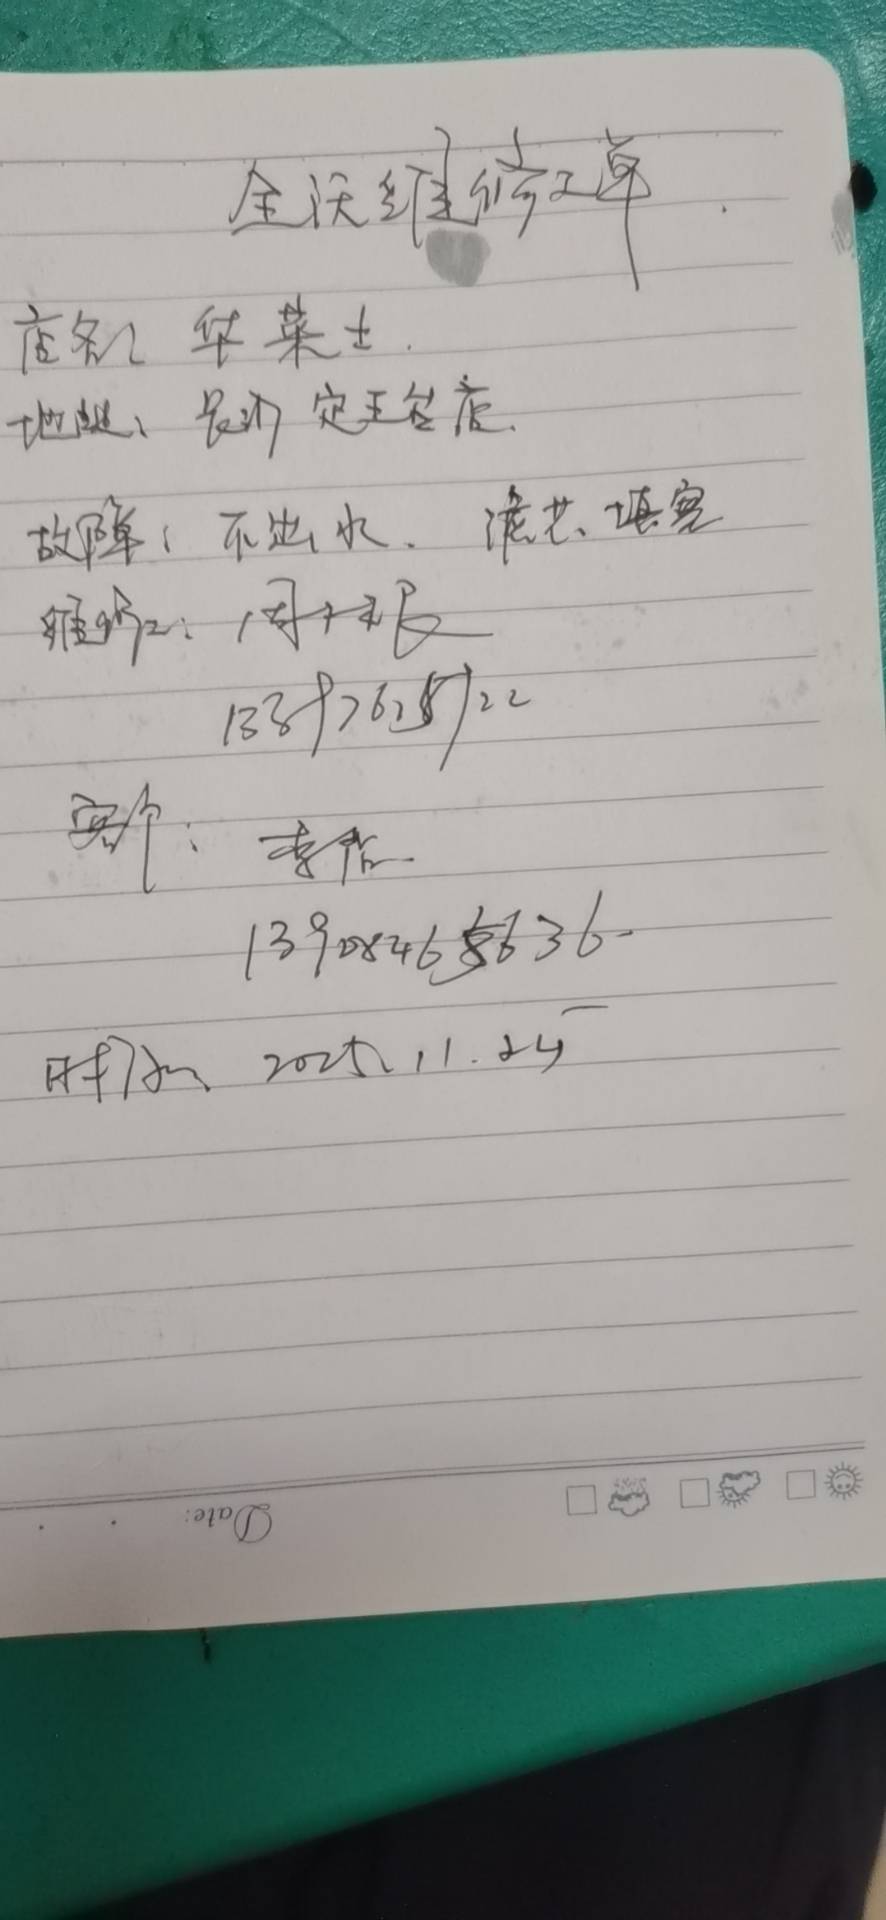 全沃维修工单
店名: 华莱士.
地址: 长沙定王台店.
故障: 不出水. 滤芯、堵塞
维修工: 周
客户: 李
13908465636
时间: 2025.11.24
Date: